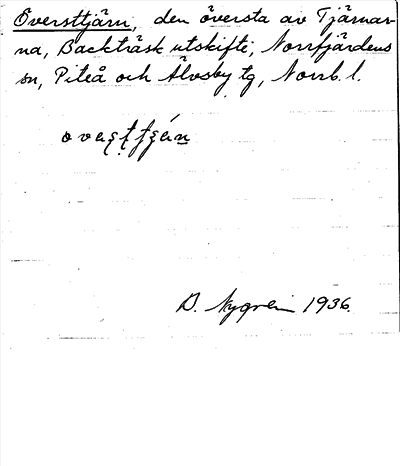 Översttjärn, den översta av Tjärnar-
na, Backträsk utskifte, Norrfjärdens
sn, Piteå och Älvsby tg, Norrb. l.
D. Nygren 1936.